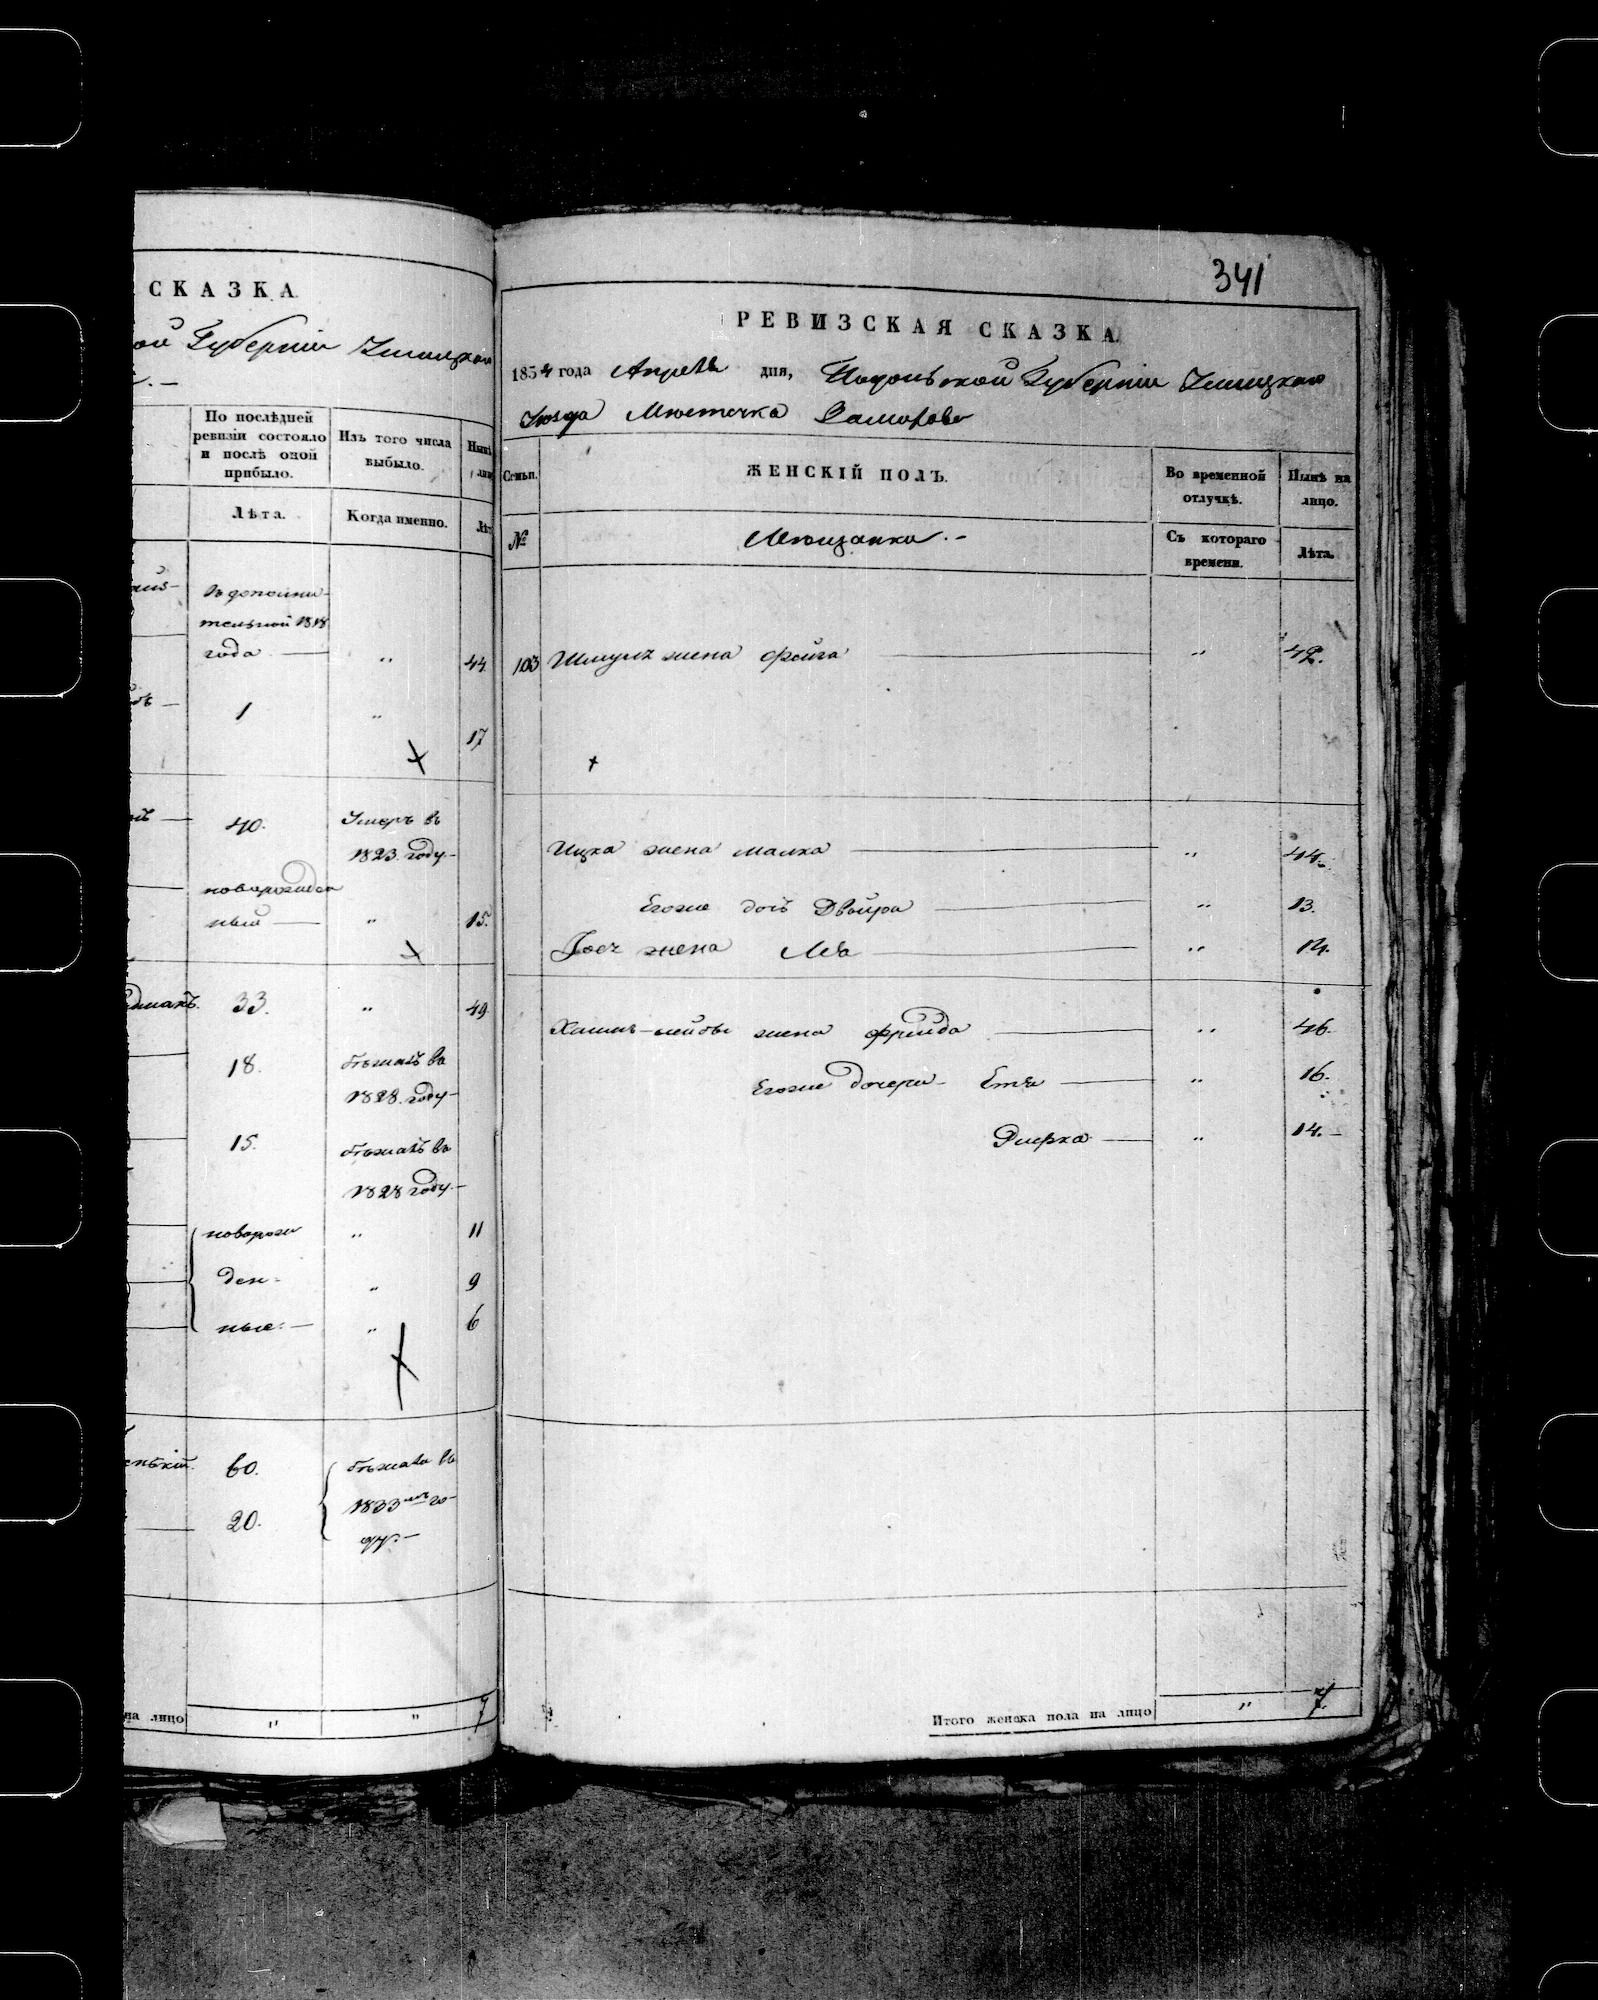 СКАЗКА.
ой Губерніи Ушицкаго
По послѣдней ревизіи состояло и послѣ оной прибыло.
Изъ того числа выбыло.
Лѣта.
Когда именно.
Въ дополни-
тельной 1818
года — " 44
1 "
17
40. Умеръ въ
1823 году.—
новорожден
ный — " 15.
33. " 49
18. бѣжалъ въ
1828 году—
15. бѣжалъ въ
1828 году.—
новорож " 11
ден- " 9
ные.— " 6
60. бѣжали въ
1833мъ го-
20.
ду.—
на лицо " " 7
341
РЕВИЗСКАЯ СКАЗКА
1854 года Апрѣля дня, Подольской Губерніи Ушицкаго
Уезда Мѣстечка Замѣхова
Семьи. ЖЕНСКІЙ ПОЛЪ. Во временной отлучкѣ. Нынѣ на лицо.
№ Мещанки.— Съ котораго времени. Лѣта.
103 Шмуля жена Фейга — " 42.
Ицка жена Малка — " 44.
Егоже дочь Двойра — " 13.
Іося жена Лея — " 14.
Хаимъ-лейбы жена Фрейда — " 46.
Егоже дочери— Етя — " 16.
Эстерка — " 14.—
Итого женска пола на лицо " 7.